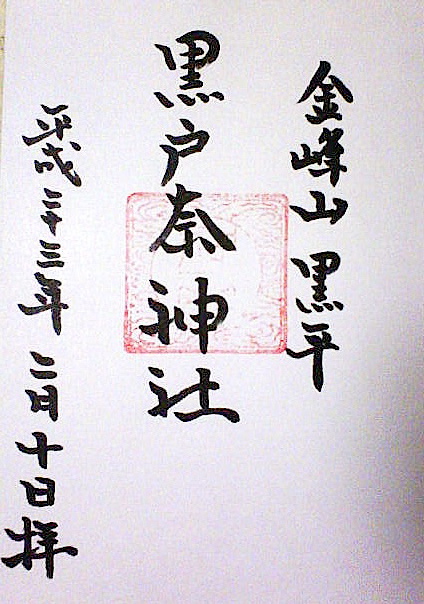 金峰山 黒平
黒戸奈神社
平成二十三年 二月十日拝